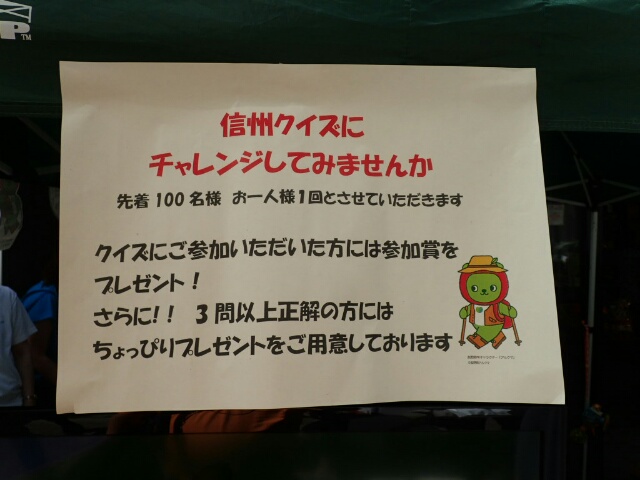 P
TM
信州クイズに
チャレンジしてみませんか
先着100名様 お一人様1回とさせていただきます
クイズにご参加いただいた方には参加賞を
プレゼント！
さらに!! 3問以上正解の方には
ちょっぴりプレゼントをご用意しております